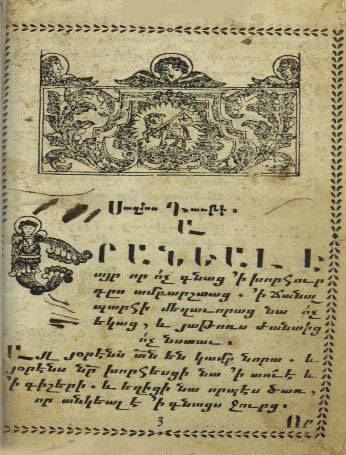 Սաղմոս Դաւթի.
Ա
ՐԱՆԵԱԼ Է
այր որ ոչ գնաց ՚ի խորհուր
դըս ամբարշտաց. ՚ի ճանա
պարհի մեղաւորաց նա ոչ
եկաց, և յաթոռս ժանտից
ոչ նստաւ.
Այլ յօրէնս տն են կամք նորա. և
յօրէնս նր խորհեսցի նա ՚ի տուէ և
՚ի գիշերի. և եղիցի նա որպէս ծառ,
որ տնկեալ է ՚ի գնացս ջուրց.
3
Որ